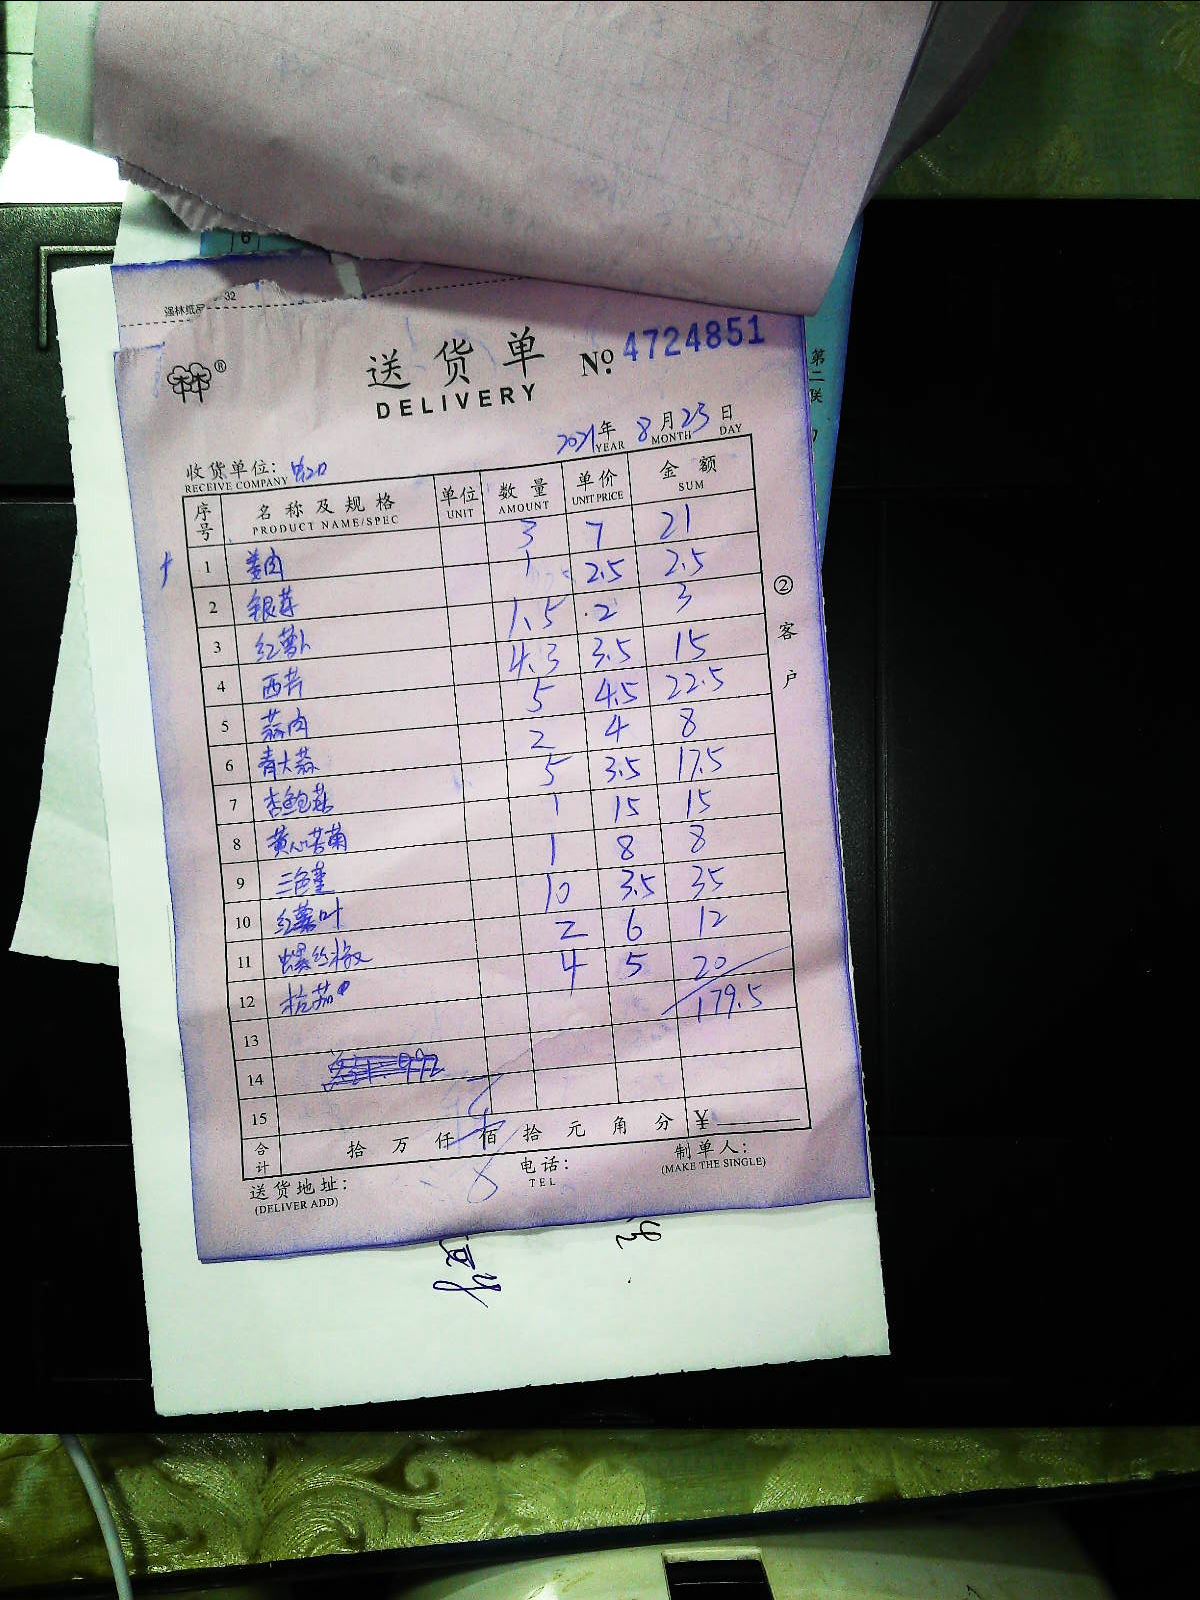 6
强林纸品 32
送货单 No. 4724851
®
DELIVERY
第二联
2021年 8月23日
YEAR MONTH DAY
收货单位:
RECEIVE COMPANY
序号 名称及规格 单位 数量 单价 金额
PRODUCT NAME/SPEC UNIT AMOUNT UNIT PRICE SUM
1 姜肉 3 7 21
2 银芽 1 2.5 2.5
3 红萝卜 1.5 2 3
4 西芹 4.3 3.5 15
5 蒜肉 5 4.5 22.5
6 青大蒜 2 4 8
7 杏鲍菇 5 3.5 17.5
8 黄心塔菊 1 15 15
9 三色堇 1 8 8
10 红薯叶 10 3.5 35
11 螺丝椒 2 6 12
12 杭茄 4 5 20
13 179.5
14
15
合计 拾万仟佰拾元角分 ¥
送货地址: 电话: 制单人:
(DELIVER ADD) TEL (MAKE THE SINGLE)
②客户